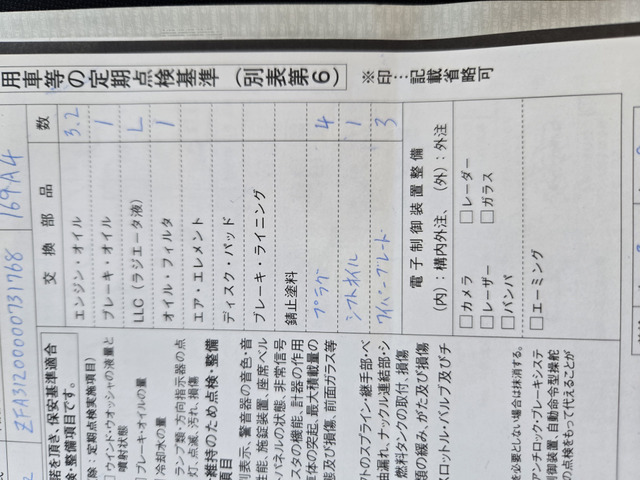 用車等の定期点検基準 (別表第6) ※印…記載省略可
ZFA31200000731768 169A4
交換部品 数
エンジン・オイル 3.2
ブレーキ・オイル 1
LLC (ラジエータ液) L
オイル・フィルタ 1
エア・エレメント
ディスク・パッド
ブレーキ・ライニング
錆止塗料
プラグ 4
シフトオイル 1
ワイパーブレード 3
電子制御装置整備
(内):構内外注、(外):外注
□カメラ □レーダー
□レーザー □ガラス
□バンパ
□エーミング
諾を頂き、保安基準適合
検・整備項目です。
除:定期点検実施項目)
□ウインド・ウオッシャの液量と
噴射状態
□ブレーキ・オイルの量
冷却水の量
ランプ類・方向指示器の点
灯、点滅、汚れ、損傷
維持のため点検・整備
項目
別表示、警音器の音色・音
性能、施錠装置、座席ベル
・パネルの状態、非常信号
スタの機能、計器の作用
車体の突起、最大積載量の
態及び損傷、前面ガラス等
フトのスプライン・継手部・ベ
油漏れ、ナックル連結部・シ
燃料タンクの取付、損傷
類の緩み、がた及び損傷
スロットル・バルブ及びチ
を必要としない場合は抹消する。
アンチロック・ブレーキシステ
制御装置、自動命令型操舵
の点検をもって代えることが